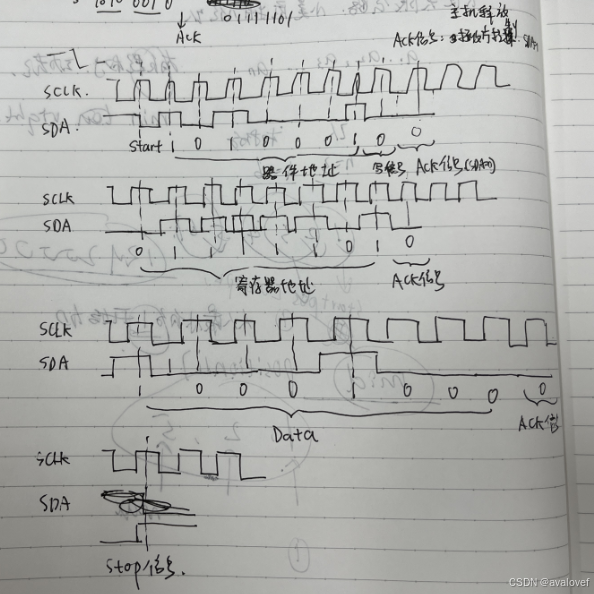 1010 0010
01111101
Ack
主机释放
Ack信号:
SCLK.
SDA.
Start 1 0 1 0 0 0 1 0 0
器件地址 写信号 Ack信号(SDA)
SCLK
SDA
0 1 1 1 1 1 0 1 0
寄存器地址 Ack信号
SCLK
SDA
1 0 0 0 1 0 0 0 0
Data Ack信
SCLK
SDA
Stop信号.
CSDN @avalovef